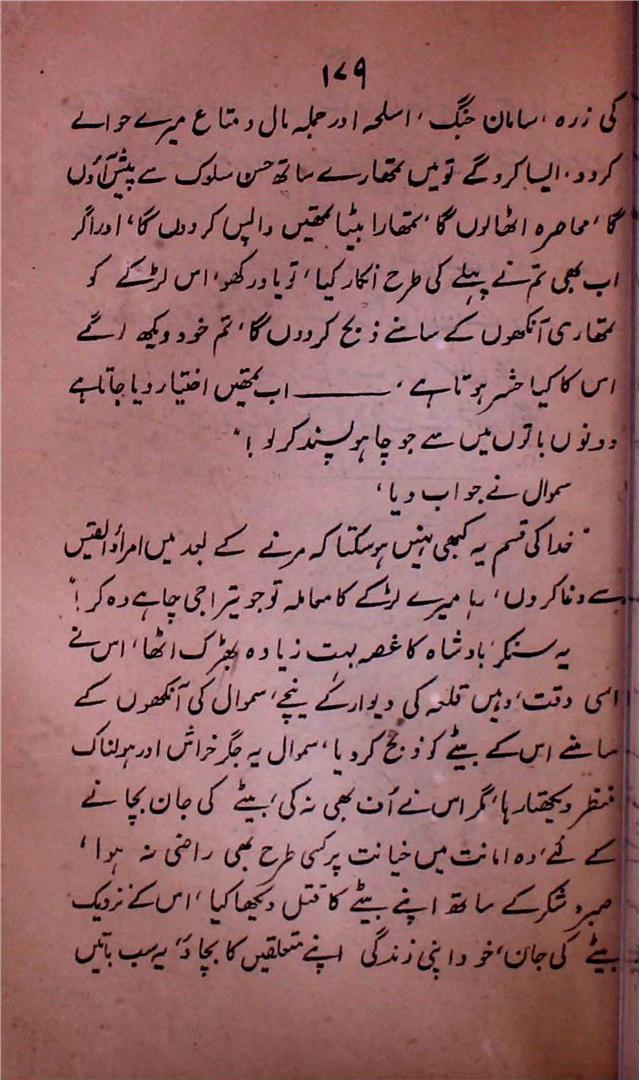 ۱۷۹
کی زرہ ، سامان جنگ ، اسلحہ اور جملہ مال و متاع میرے حوالے
کردو، ایسا کروگے تو میں تمھارے ساتھ حسن سلوک سے پیش آؤں
گا، محاصرہ اٹھالوں گا، تمھارا بیٹا تمھیں واپس کردوں گا، اور اگر
اب بھی تم نے پہلے کی طرح انکار کیا، تو یاد رکھو، اس لڑکے کو
تمھاری آنکھوں کے سامنے ذبح کردوں گا، تم خود دیکھ لوگے
اس کا کیا حشر ہوتا ہے ، ——— اب تمھیں اختیار دیا جاتا ہے
دونوں باتوں میں سے جو چاہو پسند کرلو !"
سموال نے جواب دیا ،
"خدا کی قسم یہ کبھی نہیں ہوسکتا کہ مرنے کے بعد میں امراؤ القیس
سے دغا کروں ، رہا میرے لڑکے کا معاملہ تو جو تیرا جی چاہے وہ کر !"
یہ سنکر بادشاہ کا غصہ بہت زیادہ بھڑک اٹھا ، اس نے
اسی وقت ، وہیں قلعہ کی دیوار کے نیچے ، سموال کی آنکھوں کے
سامنے اس کے بیٹے کو ذبح کردیا ، سموال یہ جگر خراش اور ہولناک
منظر دیکھتا رہا ، مگر اس نے اُف بھی نہ کی ، بیٹے کی جان بچانے
کے لئے ، وہ امانت میں خیانت پر کسی طرح بھی راضی نہ ہوا ،
صبر و شکر کے ساتھ اپنے بیٹے کا قتل دیکھا کیا ، اس کے نزدیک
بیٹے کی جان ، خود اپنی زندگی اپنے متعلقین کا بچاؤ ، یہ سب باتیں